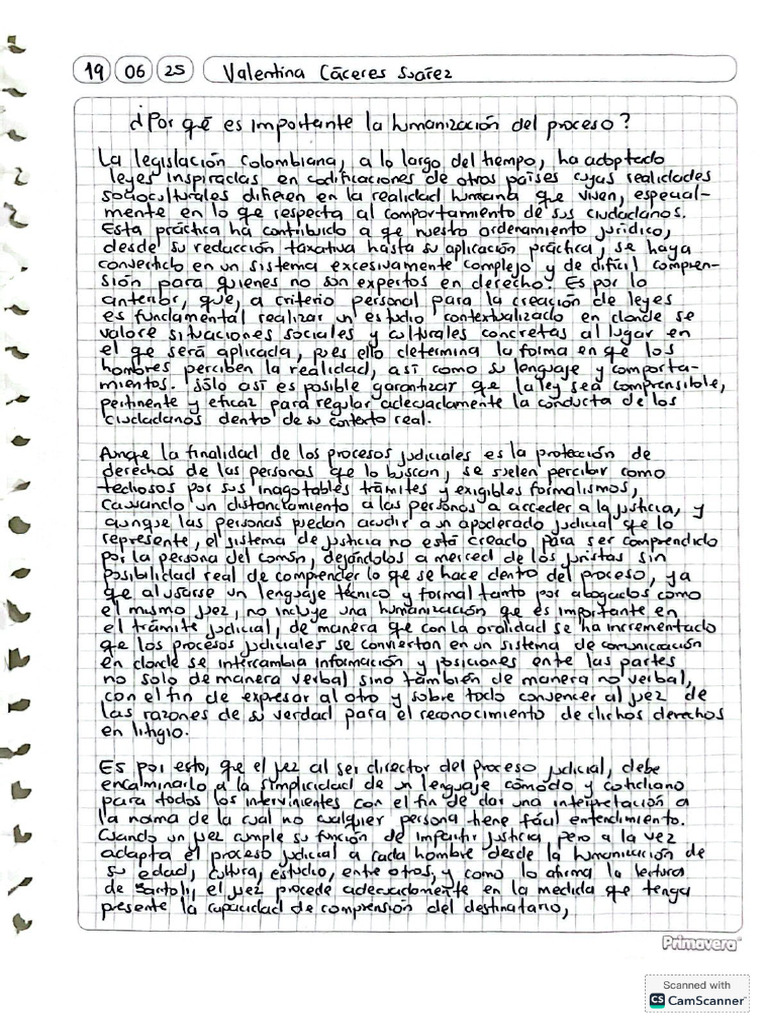 19 06 25 Valentina Cáceres Suárez
¿Por qé es importante la humanización del proceso?
La legislación colombiana, a lo largo del tiempo, ha adoptado
leyes inspiradas en codificaciones de otros países cuyas realidades
socioculturales difieren en la realidad humana que viven, especial-
mente en lo qe respecta al comportamiento de sus ciudadanos.
Esta práctica ha contribuido a qe nuestro ordenamiento jurídico,
desde su redacción taxativa hasta su aplicación práctica, se haya
convertido en un sistema excesivamente complejo y de difícil compren-
sión para quienes no son expertos en derecho. Es por lo
anterior, que, a criterio personal para la creación de leyes
es fundamental realizar un estudio contextualizado en donde se
valore situaciones sociales y culturales concretas al lugar en
el qe será aplicada, pues ello determina la forma en qe los
hombres perciben la realidad, así como su lenguaje y comporta-
mientos. Sólo así es posible garantizar que la ley sea comprensible,
pertinente y eficaz para regular adecuadamente la conducta de los
ciudadanos dentro de su contexto real.
Aunqe la finalidad de los procesos judiciales es la protección de
derechos de las personas qe lo buscan, se suelen percibir como
tediosos por sus inagotables trámites y exigibles formalismos,
causando un distanciamiento a las personas a acceder a la justicia, y
aunque las personas puedan acudir a un apoderado judicial qe lo
represente, el sistema de justicia no está creado para ser comprendido
por la persona del común, dejándolos a merced de los juristas sin
posibilidad real de comprender lo qe se hace dentro del proceso, ya
qe al usarse un lenguaje técnico y formal tanto por abogados como
el mismo juez, no incluye una humanización que es importante en
el trámite judicial, de manera qe con la oralidad se ha incrementado
qe los procesos judiciales se convierten en un sistema de comunicación
en donde se intercambia información y posiciones entre las partes
no solo de manera verbal sino también de manera no verbal,
con el fin de expresar al otro y sobre todo convencer al juez de
las razones de su verdad para el reconocimiento de dichos derechos
en litigio.
Es por esto, que el juez al ser director del proceso judicial, debe
encaminarlo a la simplicidad de un lenguaje cómodo y cotidiano
para todos los intervinientes con el fin de dar una interpretación a
la norma de la cual no cualquier persona tiene fácil entendimiento.
Cuando un juez cumple su función de impartir justicia pero a la vez
adapta el proceso judicial a cada hombre desde la humanización de
su edad, cultura, estudio, entre otros, y como lo afirma la lectura
de Bartoli, el juez procede adecuadamente en la medida que tenga
presente la capacidad de comprensión del destinatario,
Primavera
Scanned with
CS CamScanner